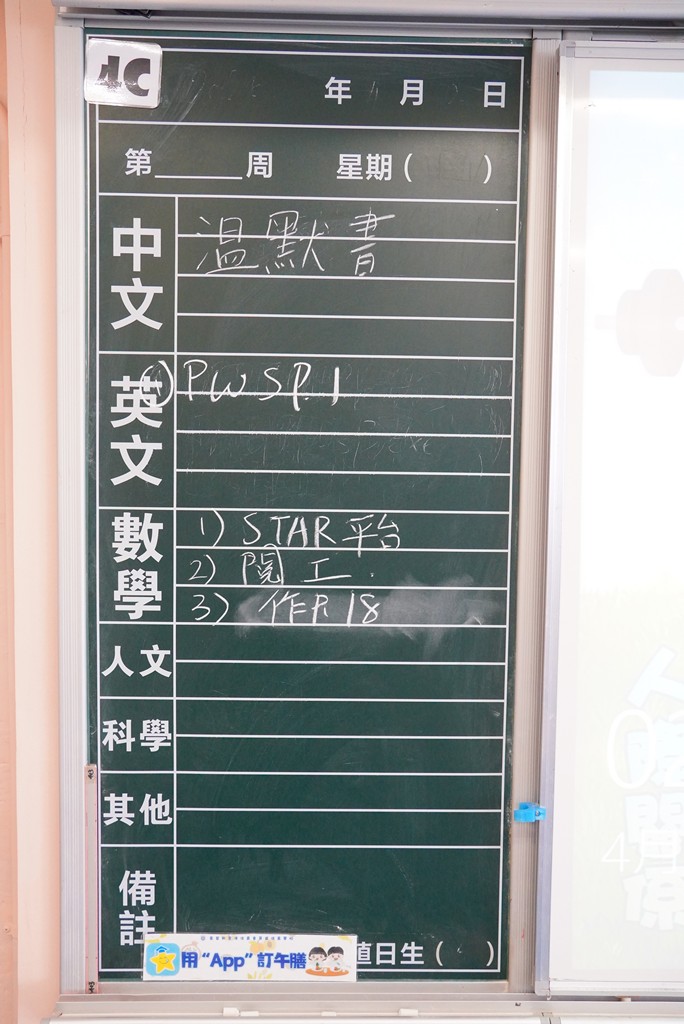 4C
年 月 日
第______周 星期( )
中文
溫默書
英文
4) PWS P.1
數學
1) STAR平台
2) 閱工
3) 作P.18
人文
科學
其他
備註
值日生( )
用“App”訂午膳
人際關係